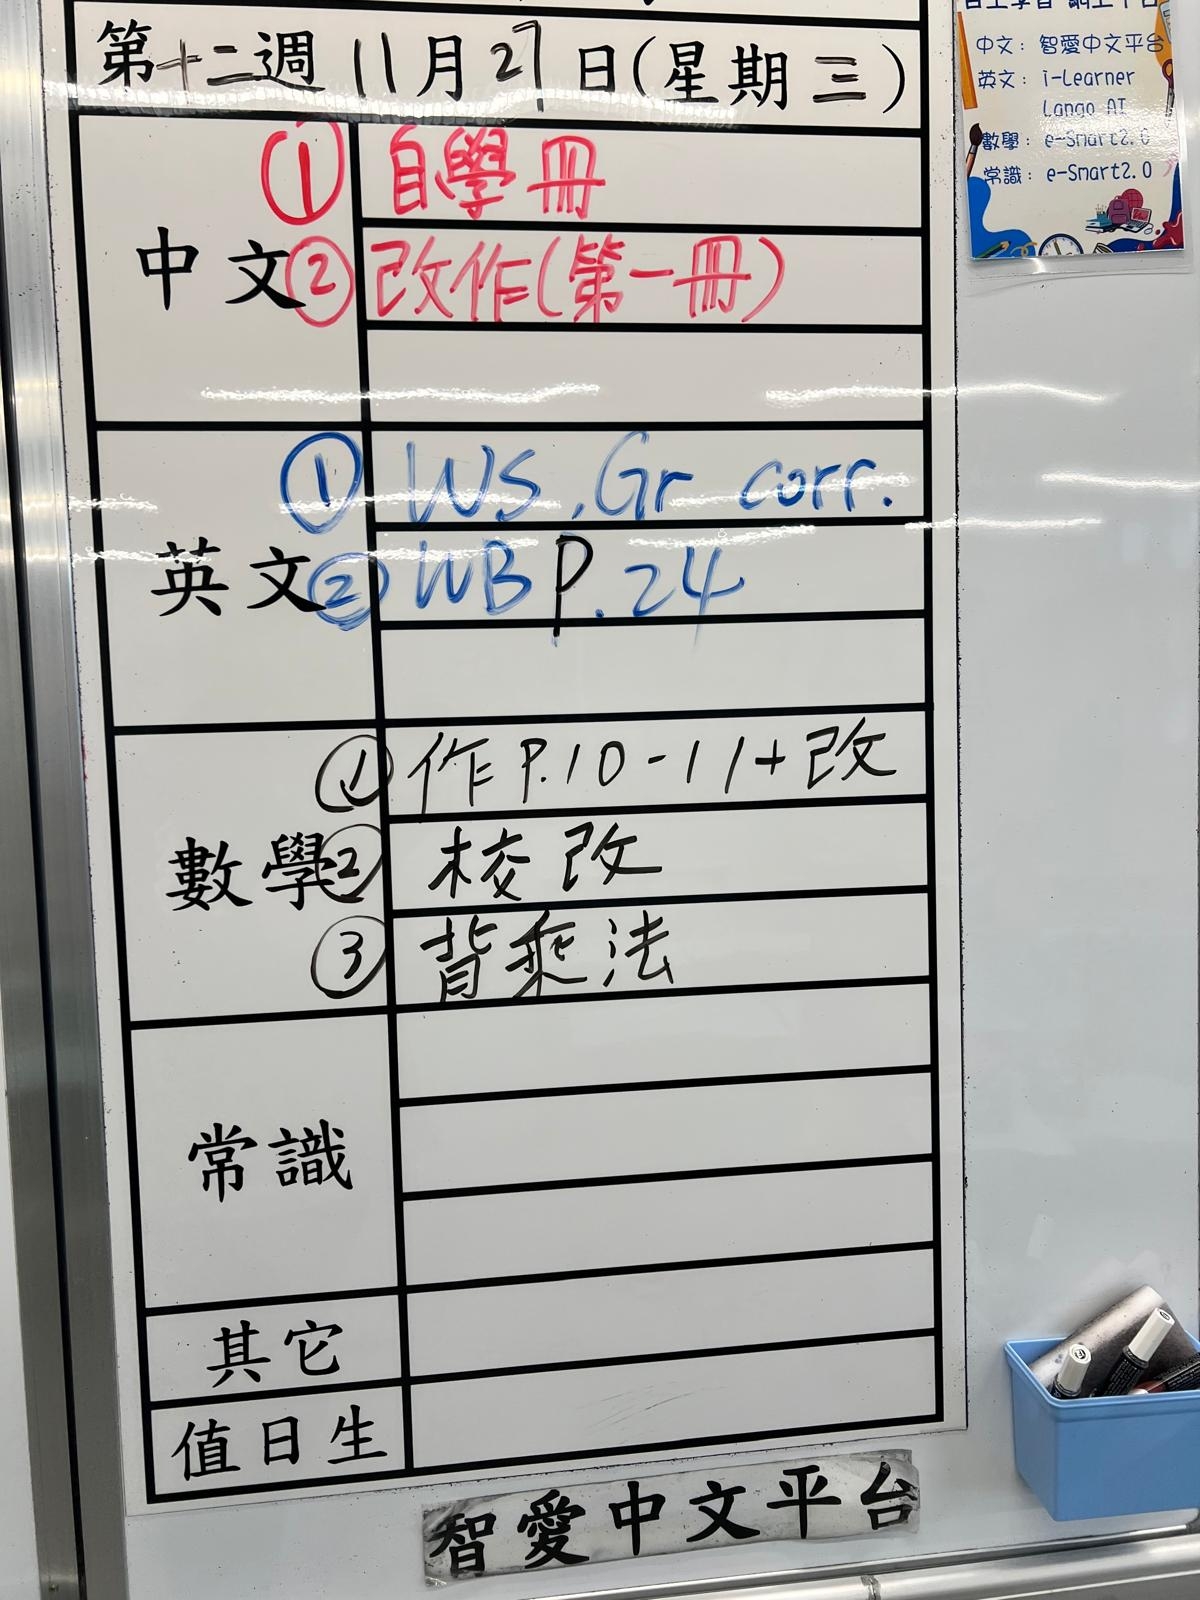 第十二週 11月27日(星期三)
中文
① 自學冊
② 改作(第一冊)
英文
① WS, Gr corr.
② WB P.24
數學
① 作 P.10-11+改
② 校改
③ 背乘法
常識
其它
值日生
智愛中文平台
自主學習 網上平台
中文: 智愛中文平台
英文: i-Learner
Lango AI
數學: e-Smart2.0
常識: e-Smart2.0